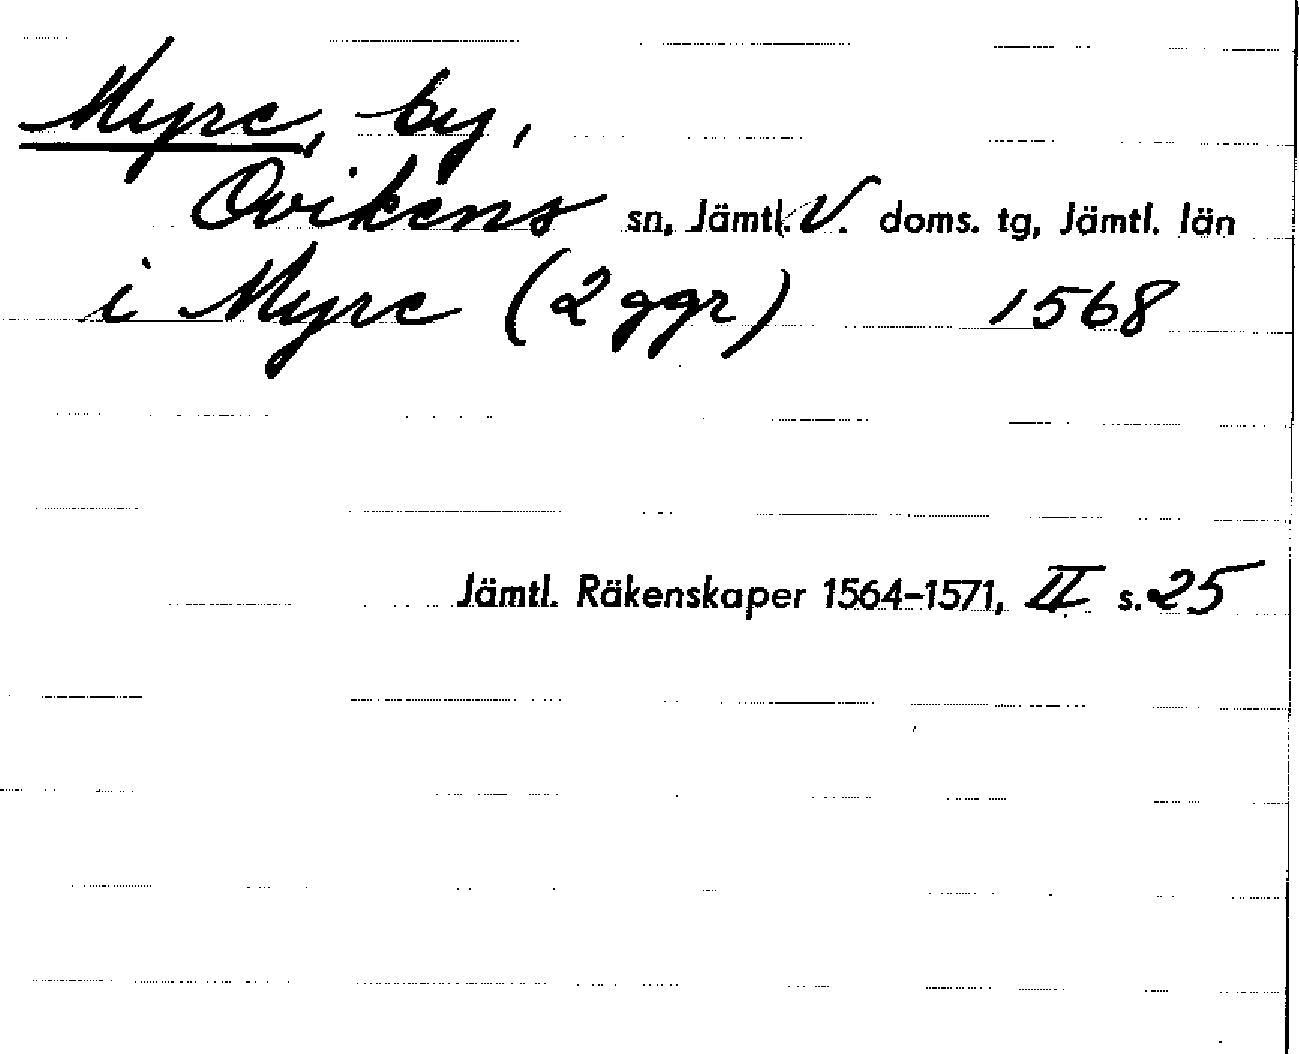 Myre, by,
Ovikens sn, Jämtl. V. doms. tg, Jämtl. län
i Myre (2 ggr) 1568
Jämtl. Räkenskaper 1564-1571, II s. 25